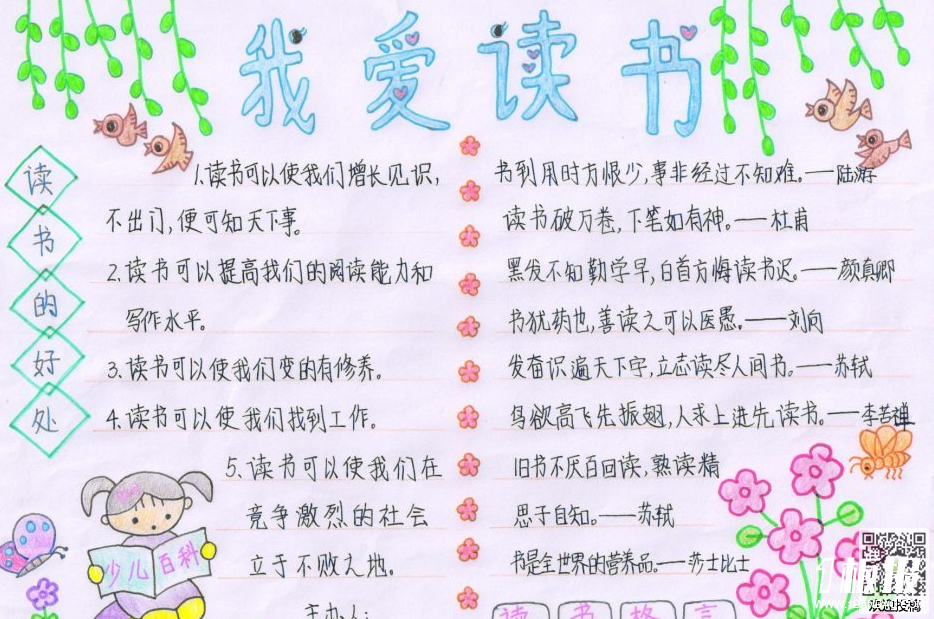 我爱读书
读书的好处
1.读书可以使我们增长见识,
不出门,便可知天下事。
2.读书可以提高我们的阅读能力和
写作水平。
3.读书可以使我们变的有修养。
4.读书可以使我们找到工作。
5.读书可以使我们在
竞争激烈的社会
立于不败之地。
主办人:
少儿百科
书到用时方恨少,事非经过不知难。——陆游
读书破万卷,下笔如有神。——杜甫
黑发不知勤学早,白首方悔读书迟。——颜真卿
书犹药也,善读之可以医愚。——刘向
发奋识遍天下字,立志读尽人间书。——苏轼
鸟欲高飞先振翅,人求上进先读书。——李苦禅
旧书不厌百回读,熟读精
思子自知。——苏轼
书是全世界的营养品。——莎士比士
读书格言
欢迎投稿